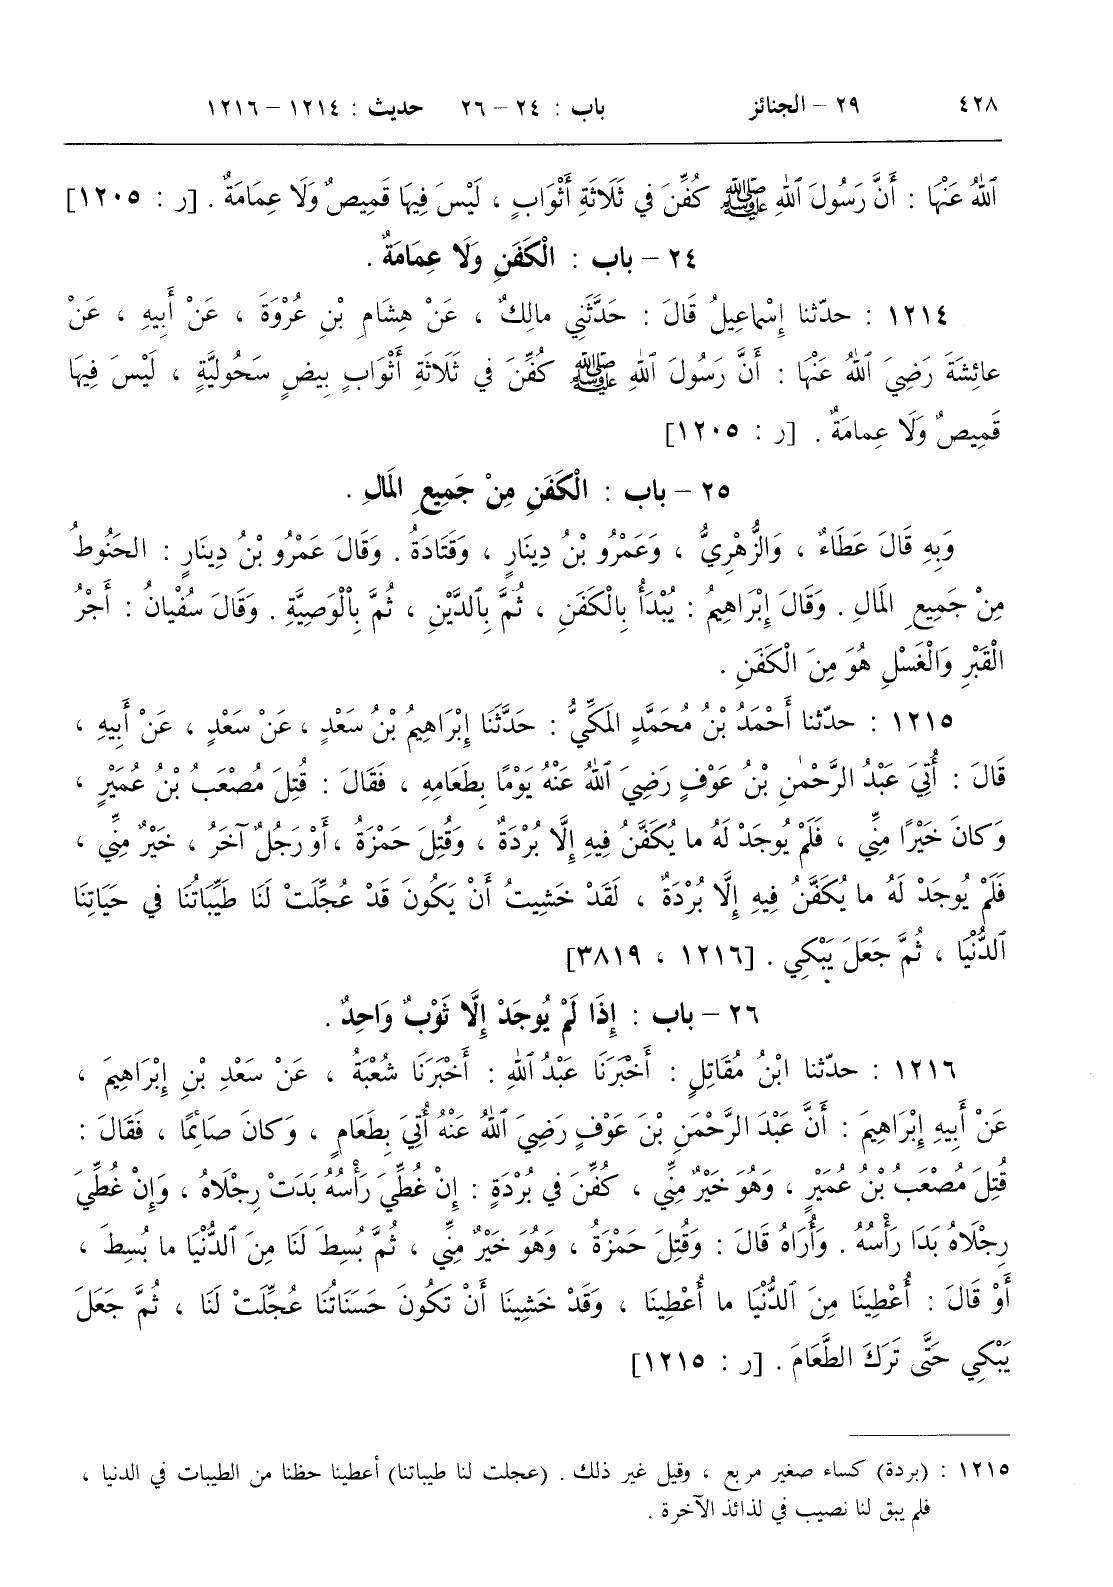 ٤٢٨ ٢٩ – الجنائز باب : ٢٤ – ٢٦ حديث : ١٢١٤ – ١٢١٦
ٱللهُ عَنْهَا : أَنَّ رَسُولَ ٱللهِ ﷺ كُفِّنَ فِي ثَلَاثَةِ أَثْوَابٍ ، لَيْسَ فِيهَا قَمِيصٌ وَلَا عِمَامَةٌ . [ر : ١٢٠٥]
٢٤ – باب : الْكَفَنِ وَلَا عِمَامَةٌ .
١٢١٤ : حدّثنا إِسْماعِيلُ قَالَ : حَدَّثَنِي مالِكٌ ، عَنْ هِشَامِ بْنِ عُرْوَةَ ، عَنْ أَبِيهِ ، عَنْ
عائِشَةَ رَضِيَ ٱللهُ عَنْهَا : أَنَّ رَسُولَ ٱللهِ ﷺ كُفِّنَ فِي ثَلَاثَةِ أَثْوَابٍ بِيضٍ سَحُولِيَّةٍ ، لَيْسَ فِيهَا
قَمِيصٌ وَلَا عِمامَةٌ . [ر : ١٢٠٥]
٢٥ – باب : الْكَفَنِ مِنْ جَمِيعِ المَالِ .
وَبِهِ قَالَ عَطَاءٌ ، وَالزُّهْرِيُّ ، وَعَمْرُو بْنُ دِينَارٍ ، وَقَتَادَةُ . وَقَالَ عَمْرُو بْنُ دِينَارٍ : الحَنُوطُ
مِنْ جَمِيعِ المَالِ . وَقَالَ إِبْرَاهِيمُ : يُبْدَأُ بِالْكَفَنِ ، ثُمَّ بِٱلدَّيْنِ ، ثُمَّ بِٱلْوَصِيَّةِ . وَقَالَ سُفْيَانُ : أَجْرُ
الْقَبْرِ وَالْغَسْلِ هُوَ مِنَ الْكَفَنِ .
١٢١٥ : حدّثنا أَحْمَدُ بْنُ مُحَمَّدٍ المَكِّيُّ : حَدَّثَنَا إِبْرَاهِيمُ بْنُ سَعْدٍ ، عَنْ سَعْدٍ ، عَنْ أَبِيهِ ،
قَالَ : أُتِيَ عَبْدُ الرَّحْمٰنِ بْنُ عَوْفٍ رَضِيَ ٱللهُ عَنْهُ يَوْمًا بِطَعَامِهِ ، فَقَالَ : قُتِلَ مُصْعَبُ بْنُ عُمَيْرٍ ،
وَكانَ خَيْرًا مِنِّي ، فَلَمْ يُوجَدْ لَهُ ما يُكَفَّنُ فِيهِ إِلَّا بُرْدَةٌ ، وَقُتِلَ حَمْزَةُ ، أَوْ رَجُلٌ آخَرُ ، خَيْرٌ مِنِّي ،
فَلَمْ يُوجَدْ لَهُ ما يُكَفَّنُ فِيهِ إِلَّا بُرْدَةٌ ، لَقَدْ خَشِيتُ أَنْ يَكُونَ قَدْ عُجِّلَتْ لَنَا طَيِّبَاتُنَا فِي حَيَاتِنَا
ٱلدُّنْيَا ، ثُمَّ جَعَلَ يَبْكِي . [١٢١٦ ، ٣٨١٩]
٢٦ – باب : إِذَا لَمْ يُوجَدْ إِلَّا ثَوْبٌ وَاحِدٌ .
١٢١٦ : حدّثنا ابْنُ مُقَاتِلٍ : أَخْبَرَنَا عَبْدُ ٱللهِ : أَخْبَرَنَا شُعْبَةُ ، عَنْ سَعْدِ بْنِ إِبْرَاهِيمَ ،
عَنْ أَبِيهِ إِبْرَاهِيمَ : أَنَّ عَبْدَ الرَّحْمَنِ بْنَ عَوْفٍ رَضِيَ ٱللهُ عَنْهُ أُتِيَ بِطَعَامٍ ، وَكانَ صَائِمًا ، فَقَالَ :
قُتِلَ مُصْعَبُ بْنُ عُمَيْرٍ ، وَهُوَ خَيْرٌ مِنِّي ، كُفِّنَ فِي بُرْدَةٍ : إِنْ غُطِّيَ رَأْسُهُ بَدَتْ رِجْلَاهُ ، وَإِنْ غُطِّيَ
رِجْلَاهُ بَدَا رَأْسُهُ . وَأُرَاهُ قَالَ : وَقُتِلَ حَمْزَةُ ، وَهُوَ خَيْرٌ مِنِّي ، ثُمَّ بُسِطَ لَنَا مِنَ ٱلدُّنْيَا ما بُسِطَ ،
أَوْ قَالَ : أُعْطِينَا مِنَ ٱلدُّنْيَا ما أُعْطِينَا ، وَقَدْ خَشِينَا أَنْ تَكُونَ حَسَنَاتُنَا عُجِّلَتْ لَنَا ، ثُمَّ جَعَلَ
يَبْكِي حَتَّى تَرَكَ الطَّعَامَ . [ر : ١٢١٥]
١٢١٥ : (بردة) كساء صغير مربع ، وقيل غير ذلك . (عجلت لنا طيباتنا) أعطينا حظنا من الطيبات في الدنيا ،
فلم يبق لنا نصيب في لذائذ الآخرة .